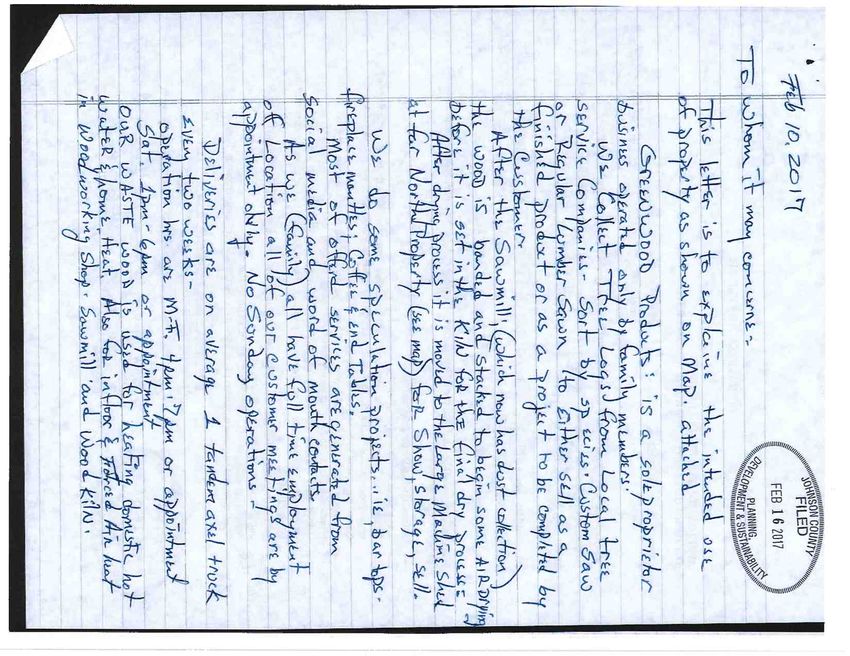 Feb 10, 2017
JOHNSON COUNTY
FILED
FEB 16 2017
PLANNING,
DEVELOPMENT & SUSTAINABILITY
To whom it may concerne =
This letter is to explaine the intended use
of property as shown on Map. attached
GreenWood Products: is a sole proprietor
business operated only by family members.
We Collect Tree Logs from Local tree
service Companies - Sort by species. Custom Saw
or Regular Lumber Sawn to Either sell as a
finished product or as a project to be completed by
the Customer.
After the Sawmill, (which now has dust collection)
the wood is banded and stacked to begin some AIR Drying
before it is set in the KILN for the final dry process =
After drying process it is moved to the Large Machine Shed
at far North Property (see map) for Show, storage, sell.
We do some speculation projects... ie, bar tops -
fireplace mantles; Coffee & end Tables.
Most of offerd services are generated from
Social media and word of mouth contacts
As we (family) all have full time employment
off Location all of our customer meetings are by
appointment only. No Sunday operations
Deliveries are on average 1 tandem axel truck
every two weeks -
operation hrs are M-F. 4pm-7pm or appointment
Sat 1pm-6pm or appointment
OUR WASTE WOOD is used for heating domestic hot
water & home Heat. Also for infloor & Forced Air heat
in Woodworking Shop. Sawmill and Wood KiLN.